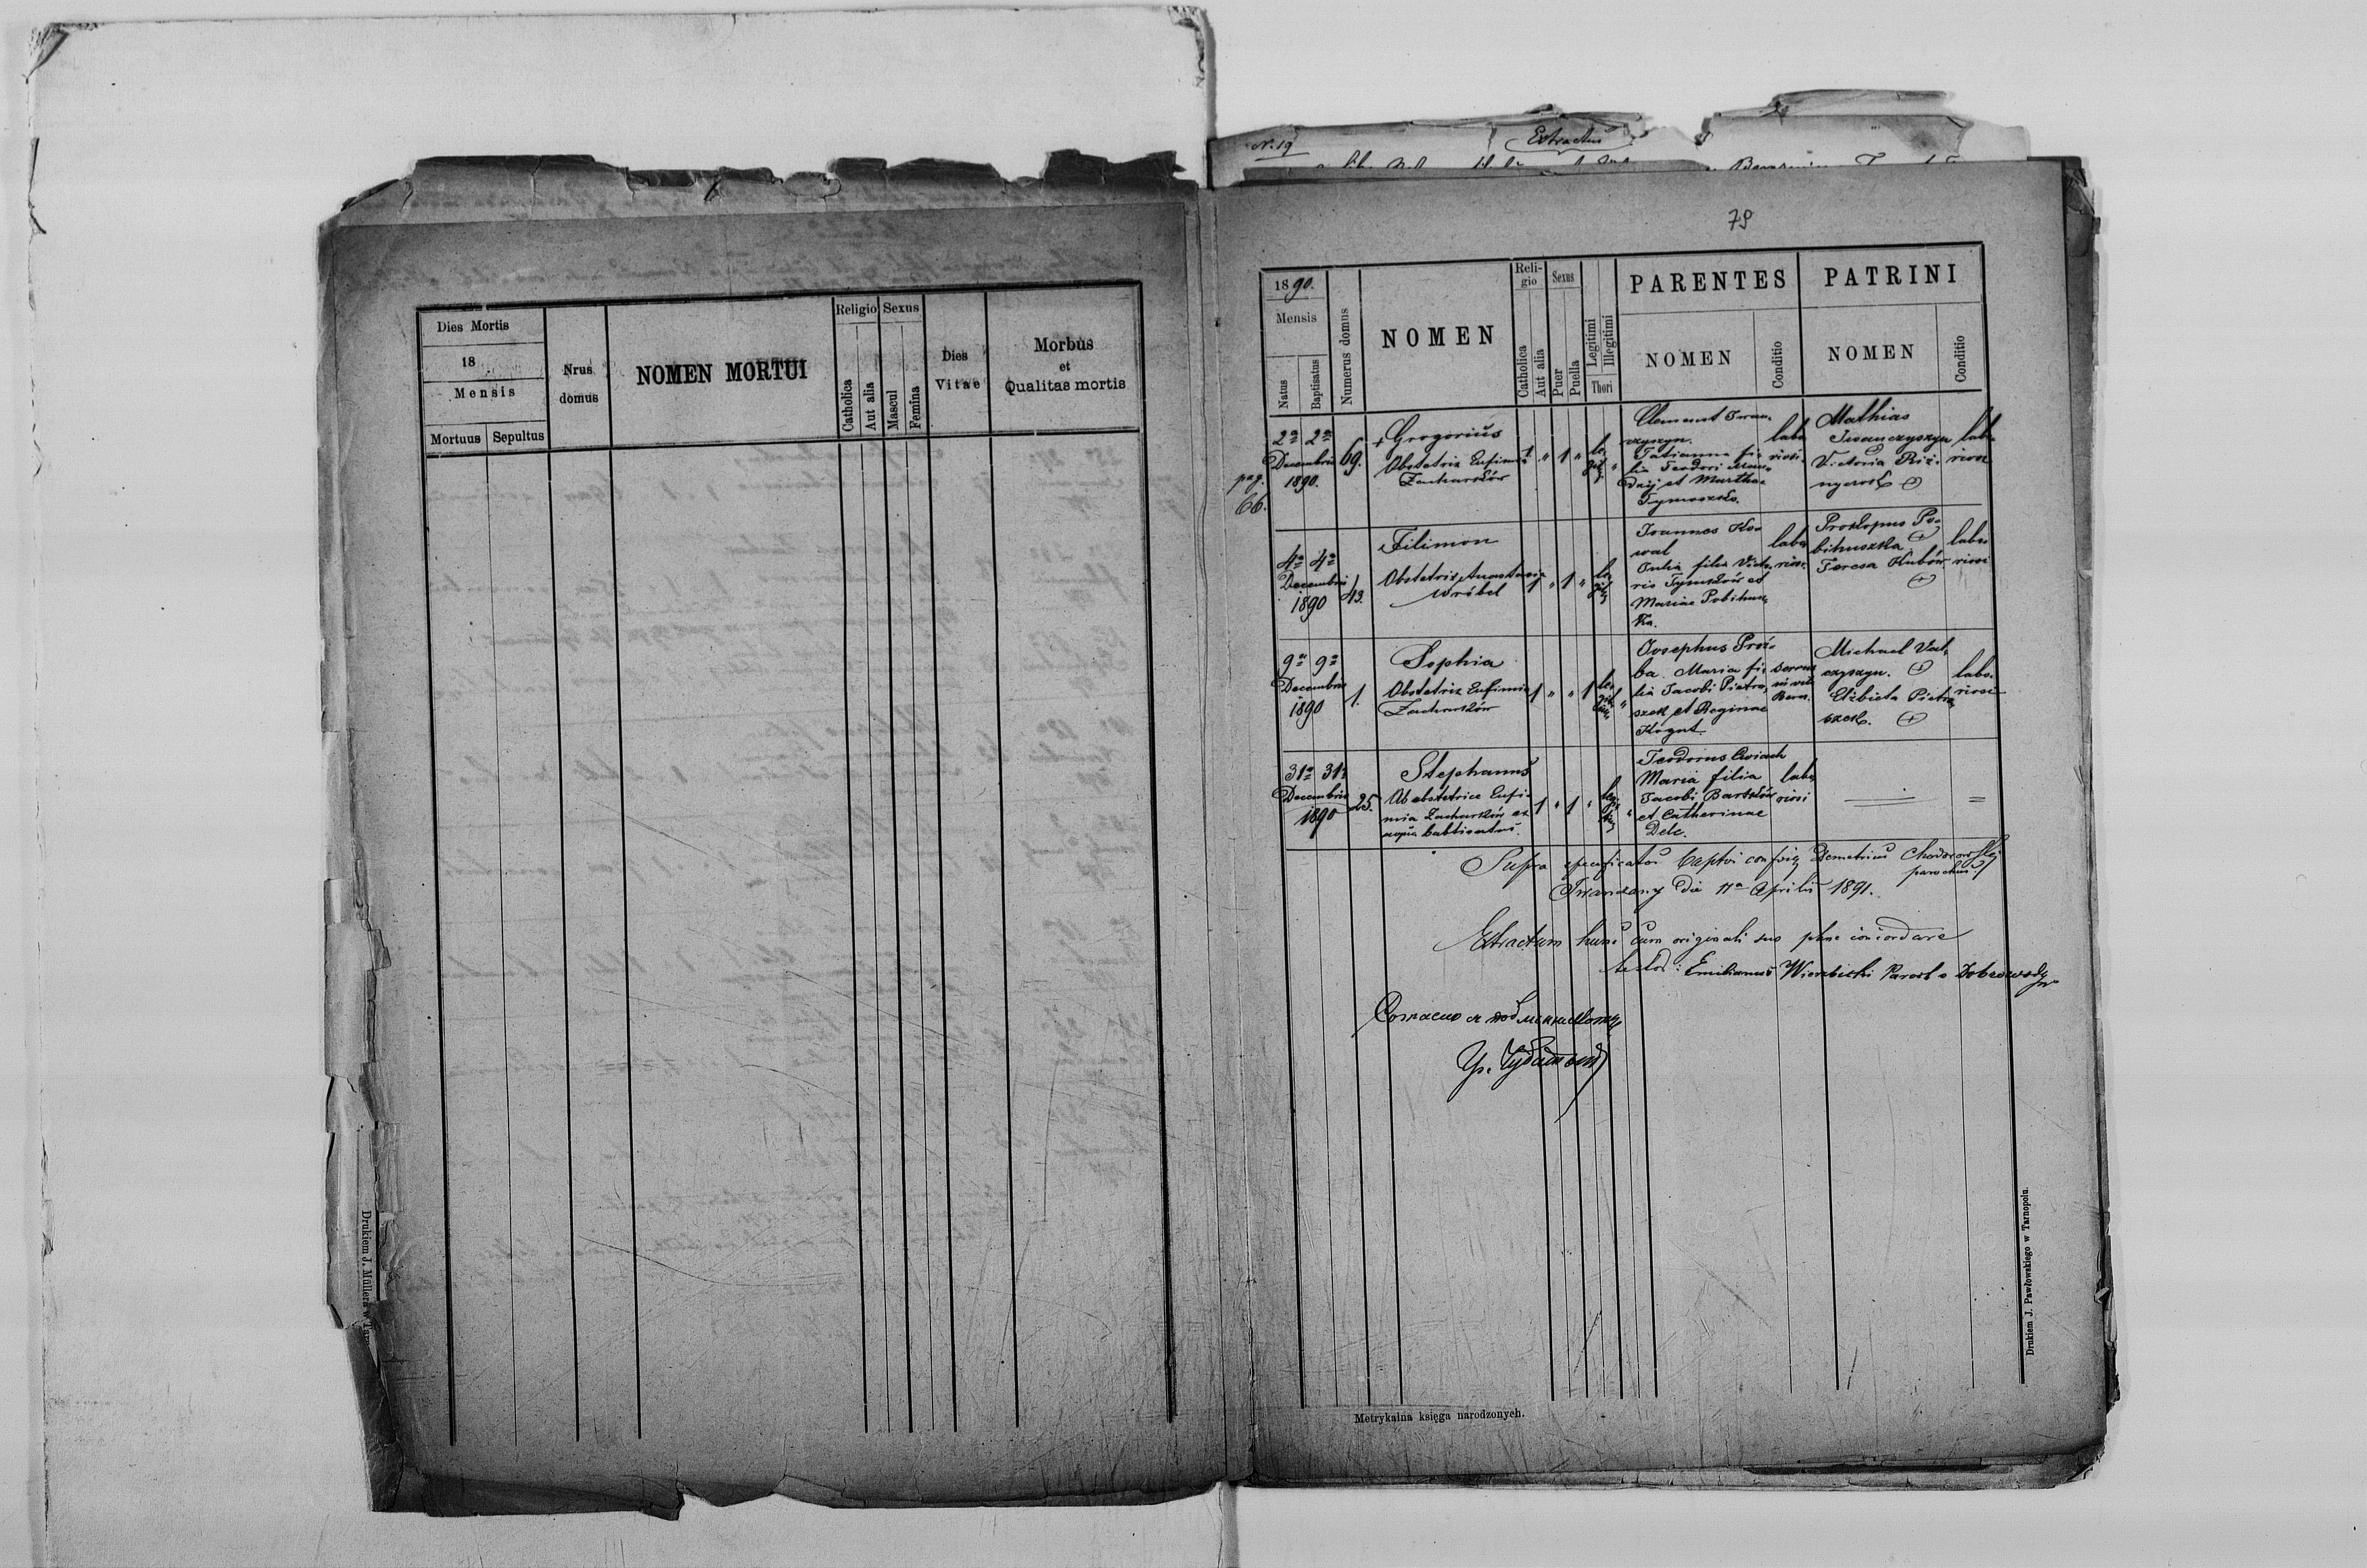 Dies Mortis
18
Mensis
Mortuus Sepultus
Nrus
domus
NOMEN MORTUI
Religio
Catholica
Aut alia
Sexus
Mascul
Femina
Dies
Vitae
Morbus
et
Qualitas mortis
Drukiem J. Müllera w
N. 19
Extractus
79
1890.
Mensis
Natus
Baptisatus
Numerus domus
NOMEN
Religio
Catholica
Aut alia
Sexus
Puer
Puella
Legitimi
Illegitimi
Thori
PARENTES
NOMEN
Conditio
PATRINI
NOMEN
Conditio
pag.
66.
2a 2a
Decembris
1890.
69.
+ Gregorius
Obstetrix Eufimia
Zacharków
1 " 1 "
Clemens Iwan-
czyszyn.
Tatianna fi-
lia Teodori
et Marthae
Tymoszko.
labo
riosi
Mathias
Iwanczyszyn
Victoria
labo-
riosi
4a 4a
Decembris
1890
43.
Filimon
Obstetrix Anastasia
Wróbel
1 " 1 "
Joannes Ko-
wal
Julia filia Victo-
ris Tymków et
Mariae Pobihusz-
ka.
labo
riosi
Prokopus Po-
bihuszka
Teresa Kubów
labo-
riosi
9a 9a
Decembris
1890
1.
Sophia
Obstetrix Eufimia
Zacharków
1 " " 1
Josephus Proś-
ba. Maria fi-
lia Jacobi Pietra-
szek et Reginae
Kogut.
Michael Wat-
czyszyn.
Elżbieta Pietra-
szek.
labo-
riosi
31a 31a
Decembris
1890
25.
Stephanus
Ab obstetrice Eufi-
mia Zacharków ex
aqua babtisatus.
1 " 1 "
Teodorus Cwiach
Maria filia
Jacobi Bartków
et Catherinae
Delc.
labo
riosi
Supra specificatos Demetrius Chodorowskij
parochus
Iwanczany die 11a Aprilis 1891.
Extractum hunc cum originali suo plene concordare
testor: Emilianus Wierzbicki Paroch. Dobrowody
Metrykalna księga narodzonych.
Drukiem J. Pawłowskiego w Tarnopolu.